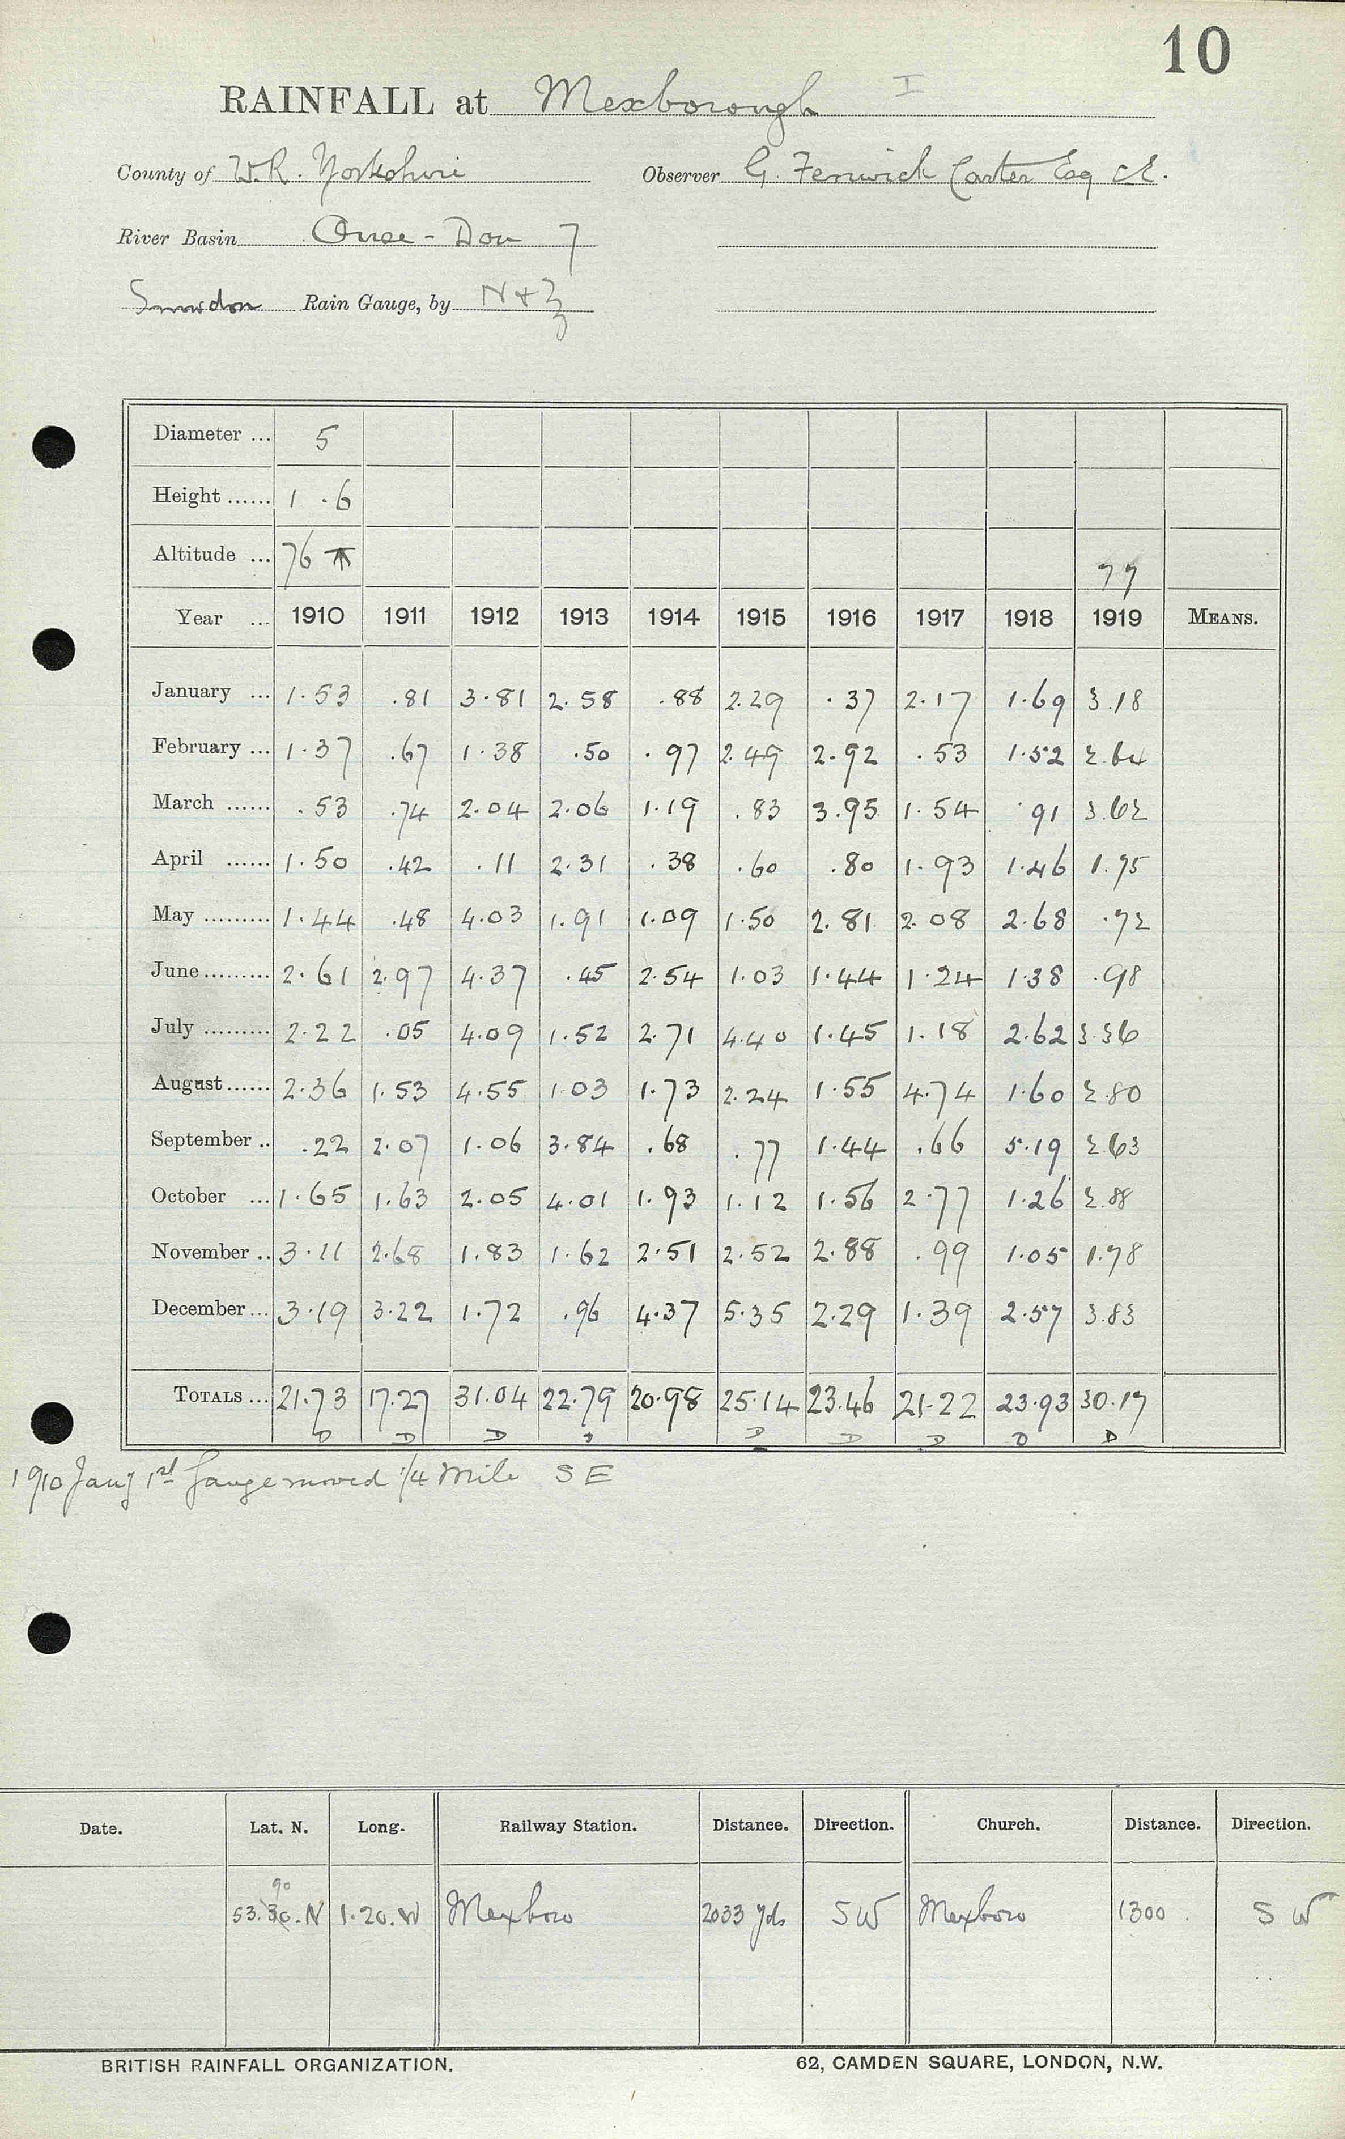 10
RAINFALL at Mexborough I
County of W.R. Yorkshire Observer G. Fenwick Carter Esq CE.
River Basin Ouse - Don 7
Snowdon Rain Gauge, by N & Z
Diameter ... 5
Height ...... 1 .6
Altitude ... 76 77
Year ... 1910 1911 1912 1913 1914 1915 1916 1917 1918 1919 MEANS.
January ... 1.53 .81 3.81 2.58 .88 2.29 .37 2.17 1.69 3.18
February ... 1.37 .67 1.38 .50 .97 2.49 2.92 .53 1.52 2.64
March ...... .53 .74 2.04 2.06 1.19 .83 3.95 1.54 .91 3.62
April ...... 1.50 .42 .11 2.31 .38 .60 .80 1.93 1.46 1.75
May ......... 1.44 .48 4.03 1.91 1.09 1.50 2.81 2.08 2.68 .72
June ......... 2.61 2.97 4.37 .45 2.54 1.03 1.44 1.24 1.38 .98
July ......... 2.22 .05 4.09 1.52 2.71 4.40 1.45 1.18 2.62 3.36
August ...... 2.36 1.53 4.55 1.03 1.73 2.24 1.55 4.74 1.60 2.80
September .. .22 2.07 1.06 3.84 .68 .77 1.44 .66 5.19 2.63
October ... 1.65 1.63 2.05 4.01 1.93 1.12 1.56 2.77 1.26 2.88
November .. 3.11 2.68 1.83 1.62 2.51 2.52 2.88 .99 1.05 1.78
December ... 3.19 3.22 1.72 .96 4.37 5.35 2.29 1.39 2.57 3.83
TOTALS ... 21.73 17.27 31.04 22.79 20.98 25.14 23.46 21.22 23.93 30.17
D D D D D D D D D
1910 Jany 1st Gauge moved 1/4 Mile S E
Date. Lat. N. Long. Railway Station. Distance. Direction. Church. Distance. Direction.
90
53.30.N 1.20.W Mexboro 2033 yds SW Mexboro 1300 S W
BRITISH RAINFALL ORGANIZATION. 62, CAMDEN SQUARE, LONDON, N.W.